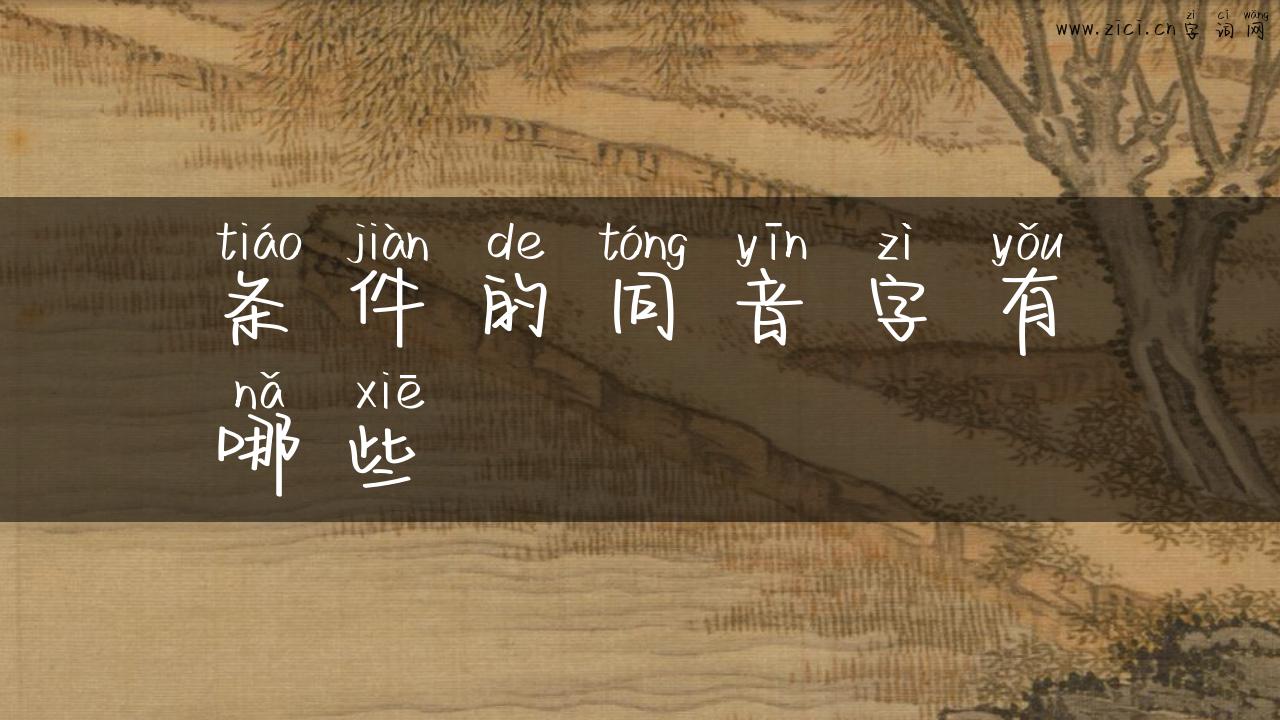 zì cí wǎng
www.zici.cn字词网
tiáo jiàn de tóng yīn zì yǒu
条件的同音字有
nǎ xiē
哪些